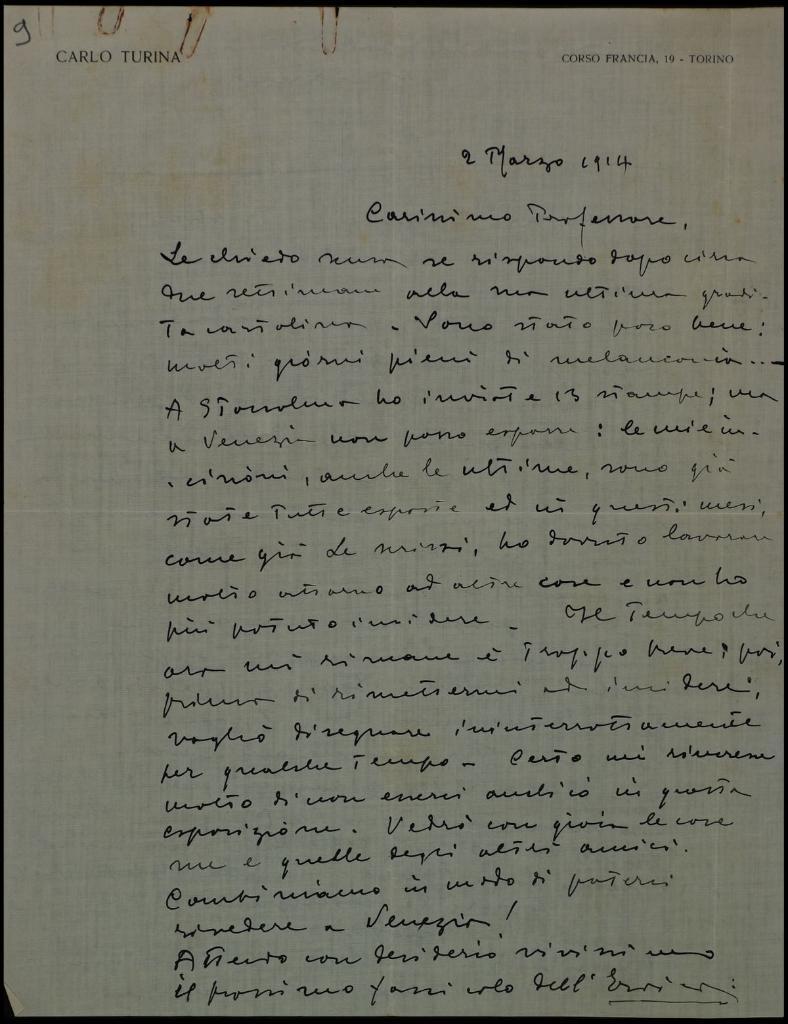 9
CARLO TURINA
CORSO FRANCIA, 19 - TORINO
2 Marzo 1914
Carissimo Professore,
Le chiedo scusa se rispondo dopo circa
due settimane alla sua ultima gradi-
ta cartolina. Sono stato poco bene:
molti giorni pieni di melanconia...
A Stoccolma ho inviate 13 stampe; ma
a Venezia non posso esporre: le mie in-
cisioni, anche le ultime, sono già
state tutte esposte ed in questi mesi,
come già Le scrissi, ho dovuto lavorare
molto attorno ad altre cose e non ho
più potuto incidere. Il tempo che
ora mi rimane è troppo breve; poi,
prima di rimettermi ad incidere,
voglio disegnare ininterrottamente
per qualche tempo. Certo mi rincresce
molto di non esserci anch'io in questa
esposizione. Vedrò con gioia le cose
sue e quelle degli altri amici.
Combiniamo in modo di poterci
rivedere a Venezia!
Attendo con desiderio vivissimo
il prossimo fascicolo dell'Eroica: